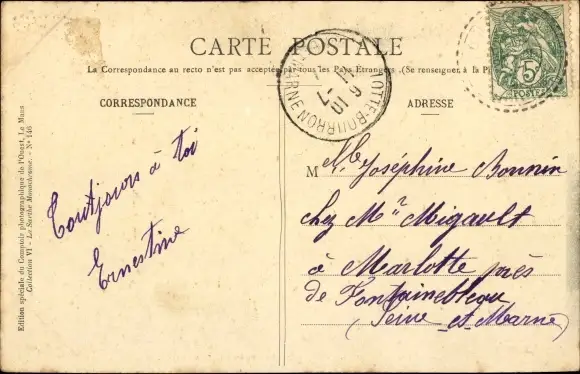 CARTE POSTALE
La Correspondance au recto n'est pas acceptée par tous les Pays Etrangers. (Se renseigner à la P
CORRESPONDANCE
ADRESSE
Toutjours à toi
Ernestine
Mlle Joséphine Bonnin
chez Mr Migault
à Marlotte près
de Fontainebleau
(Seine et Marne)
Edition spéciale du Comptoir photographique de l'Ouest, Le Mans
Collection VI - La Sarthe Monumentale. - No 146
OTTE-BOURRON
MARNE
5c
POSTES